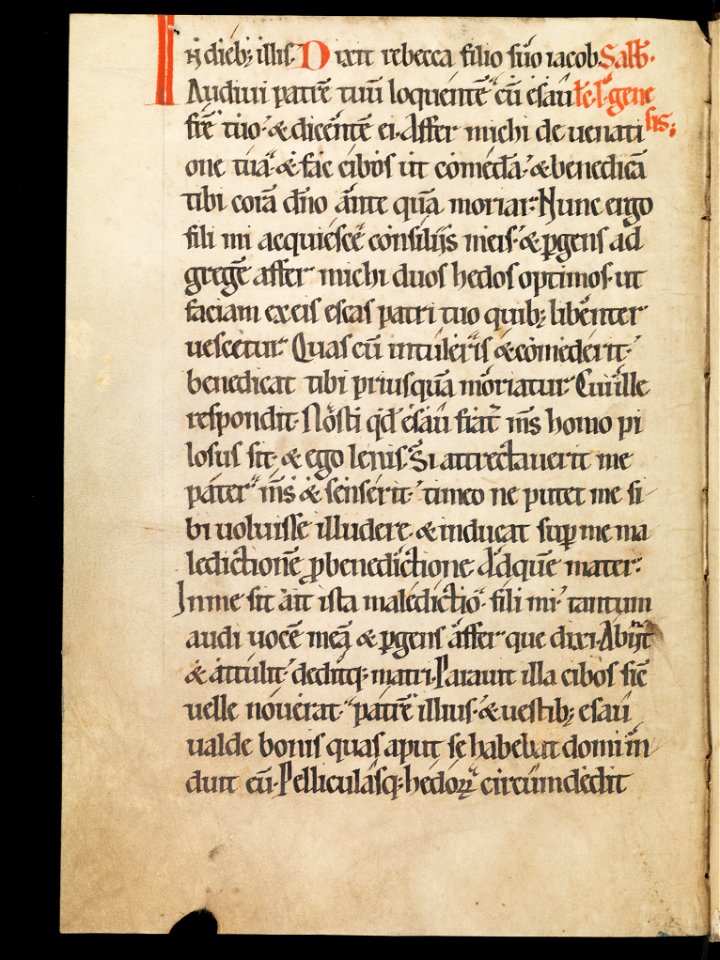 In dieb; illis. Dixit rebecca filio suo iacob. Sabb̄.
Audiui patrē tuū loquentē cū esau le. l. gene
frē tuo. & dicentē ei. Affer michi de uenati sis;
one tua. & fac cibos ut comedā. & benedicā
tibi corā dn̄o ante quā moriar. Nunc ergo
fili mi acquiesce consiliis meis. & ꝑgens ad
gregē affer michi duos hedos optimos. ut
faciam ex eis escas patri tuo quib; libenter
uescetur. Quas cū intuleris & comederit.
benedicat tibi priusquā moriatur. Cui ille
respondit. Nosti qd̄ esau frat̄ ms̄ homo pi
losus sit. & ego lenis. Si attrectauerit me
pater ms̄ & senserit. timeo ne putet me si
bi uoluisse illudere. & inducat suꝑ me ma
ledictionē ꝓ benedictione. Ad quē mater.
In me sit ait ista maledictio. fili mi. tantum
audi uocē meā & ꝑgens affer que dixi. Abiit
& attulit. deditq; matri. Parauit illa cibos sic̄
uelle nouerat patrē illius. & uestib; esau
ualde bonis quas aput se habebat domi in
duit eū. Pelliculasq; hedoꝝ circumdedit